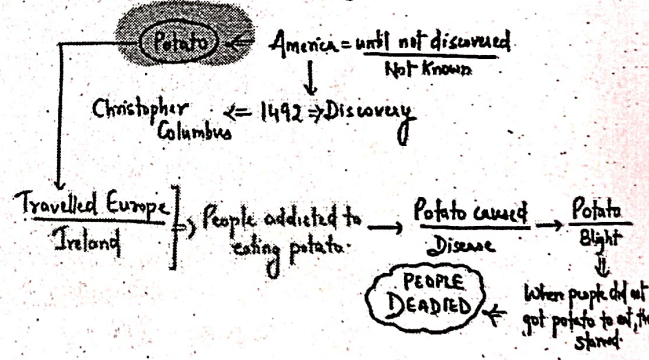 Potato <= America = until not discovered
Not Known
Christopher Columbus <= 1492 => Discovery
Travelled Europe
Ireland
=> People addicted to
eating potato.
→ Potato caused
Disease
→ Potato
Blight
When people did not
got potato to eat, th
starved.
PEOPLE
DEADIED